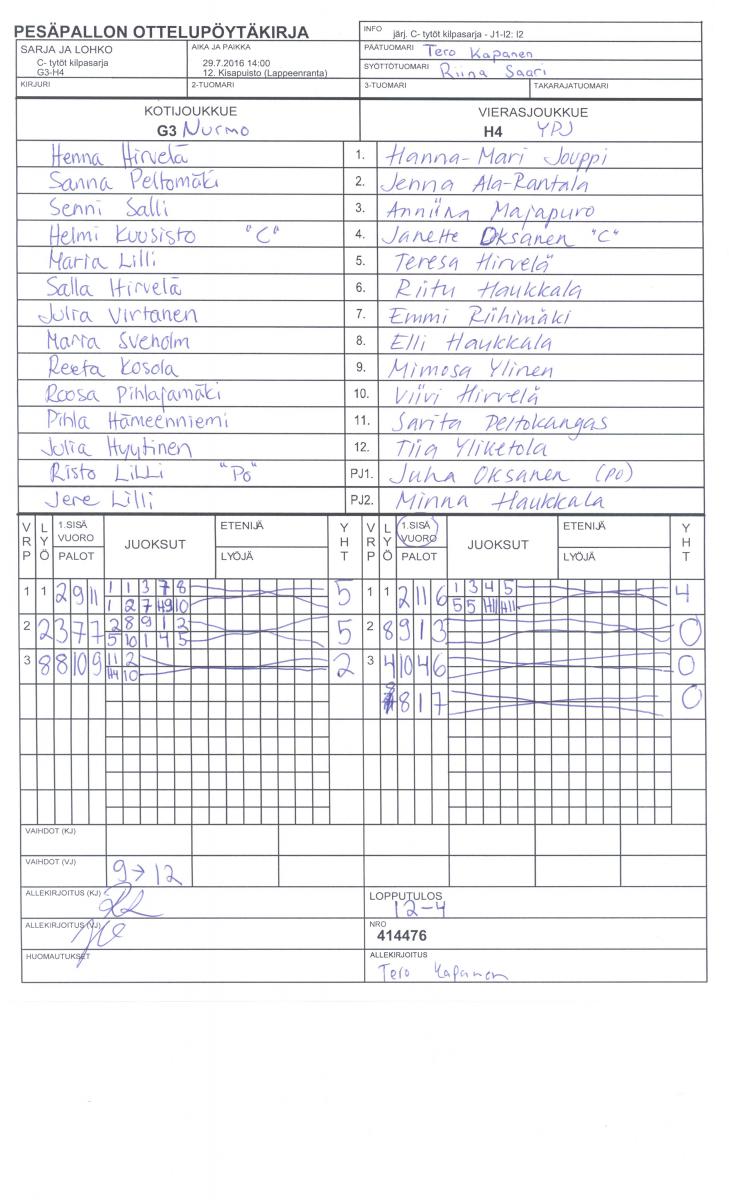 PESÄPALLON OTTELUPÖYTÄKIRJA
INFO järj. C- tytöt kilpasarja - J1-I2: I2
SARJA JA LOHKO
C- tytöt kilpasarja
G3-H4
AIKA JA PAIKKA
29.7.2016 14:00
12. Kisapuisto (Lappeenranta)
PÄÄTUOMARI Tero Kapanen
SYÖTTÖTUOMARI Riina Saari
KIRJURI 2-TUOMARI 3-TUOMARI TAKARAJATUOMARI
KOTIJOUKKUE VIERASJOUKKUE
G3 Nurmo H4 YPJ
Henna Hirvelä 1. Hanna-Mari Jouppi
Sanna Peltomäki 2. Jenna Ala-Rantala
Senni Salli 3. Anniina Majapuro
Helmi Kuusisto "C" 4. Janette Oksanen "C"
Maria Lilli 5. Teresa Hirvelä
Salla Hirvelä 6. Riitu Haukkala
Julia Virtanen 7. Emmi Riihimäki
Marra Sveholm 8. Elli Haukkala
Reeta Kosola 9. Mimosa Ylinen
Roosa Pihlajamäki 10. Viivi Hirvelä
Pihla Hämeenniemi 11. Sarita Peltokangas
Julia Hyytinen 12. Tiia Yliketola
Risto Lilli "Po" PJ1. Juha Oksanen (PO)
Jere Lilli PJ2. Minna Haukkala
VRP LYÖ 1.SISÄ VUORO PALOT JUOKSUT ETENIJÄ LYÖJÄ YHT VRP LYÖ 1.SISÄ VUORO PALOT JUOKSUT ETENIJÄ LYÖJÄ YHT
1 1 2 9 11 1 1 3 7 8 5 1 1 2 11 6 1 3 4 5 4
1 2 7 H9 10 5 5 H11 H11
2 2 3 7 7 2 8 9 1 2 5 2 8 9 1 3 0
5 10 1 4 5
3 8 8 10 9 11 2 2 3 4 10 4 6 0
H4 10
8 1 7 0
VAIHDOT (KJ)
VAIHDOT (VJ) 9→12
ALLEKIRJOITUS (KJ) LOPPUTULOS
12-4
ALLEKIRJOITUS (VJ) NRO
414476
HUOMAUTUKSET ALLEKIRJOITUS
Tero Kapanen